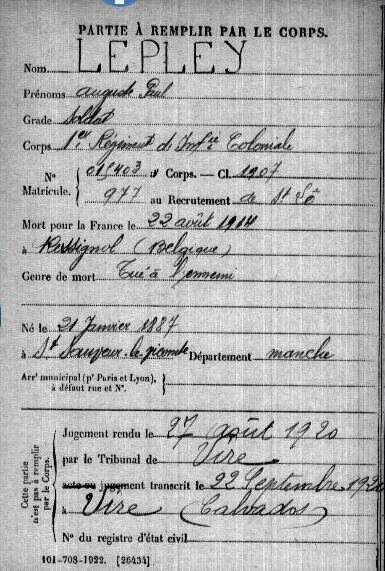 PARTIE À REMPLIR PAR LE CORPS.
Nom LEPLEY
Prénoms auguste Paul
Grade Soldat
Corps 1er Régiment d'Infie Coloniale
No 019403 au Corps. — Cl. 1907
Matricule. 977 au Recrutement de St Lô
Mort pour la France le 22 août 1914
à Rossignol (Belgique)
Genre de mort Tué à l'ennemi
Né le 21 Janvier 1887
à St Sauveur-le-Vicomte Département manche
Arrt municipal (pr Paris et Lyon),
à défaut rue et No.
Cette partie
n'est pas à remplir
par le Corps.
Jugement rendu le 27 août 1920
par le Tribunal de Vire
acte ou jugement transcrit le 22 Septembre 1920
à Vire (Calvados)
No du registre d'état civil
101-708-1922. [26434]